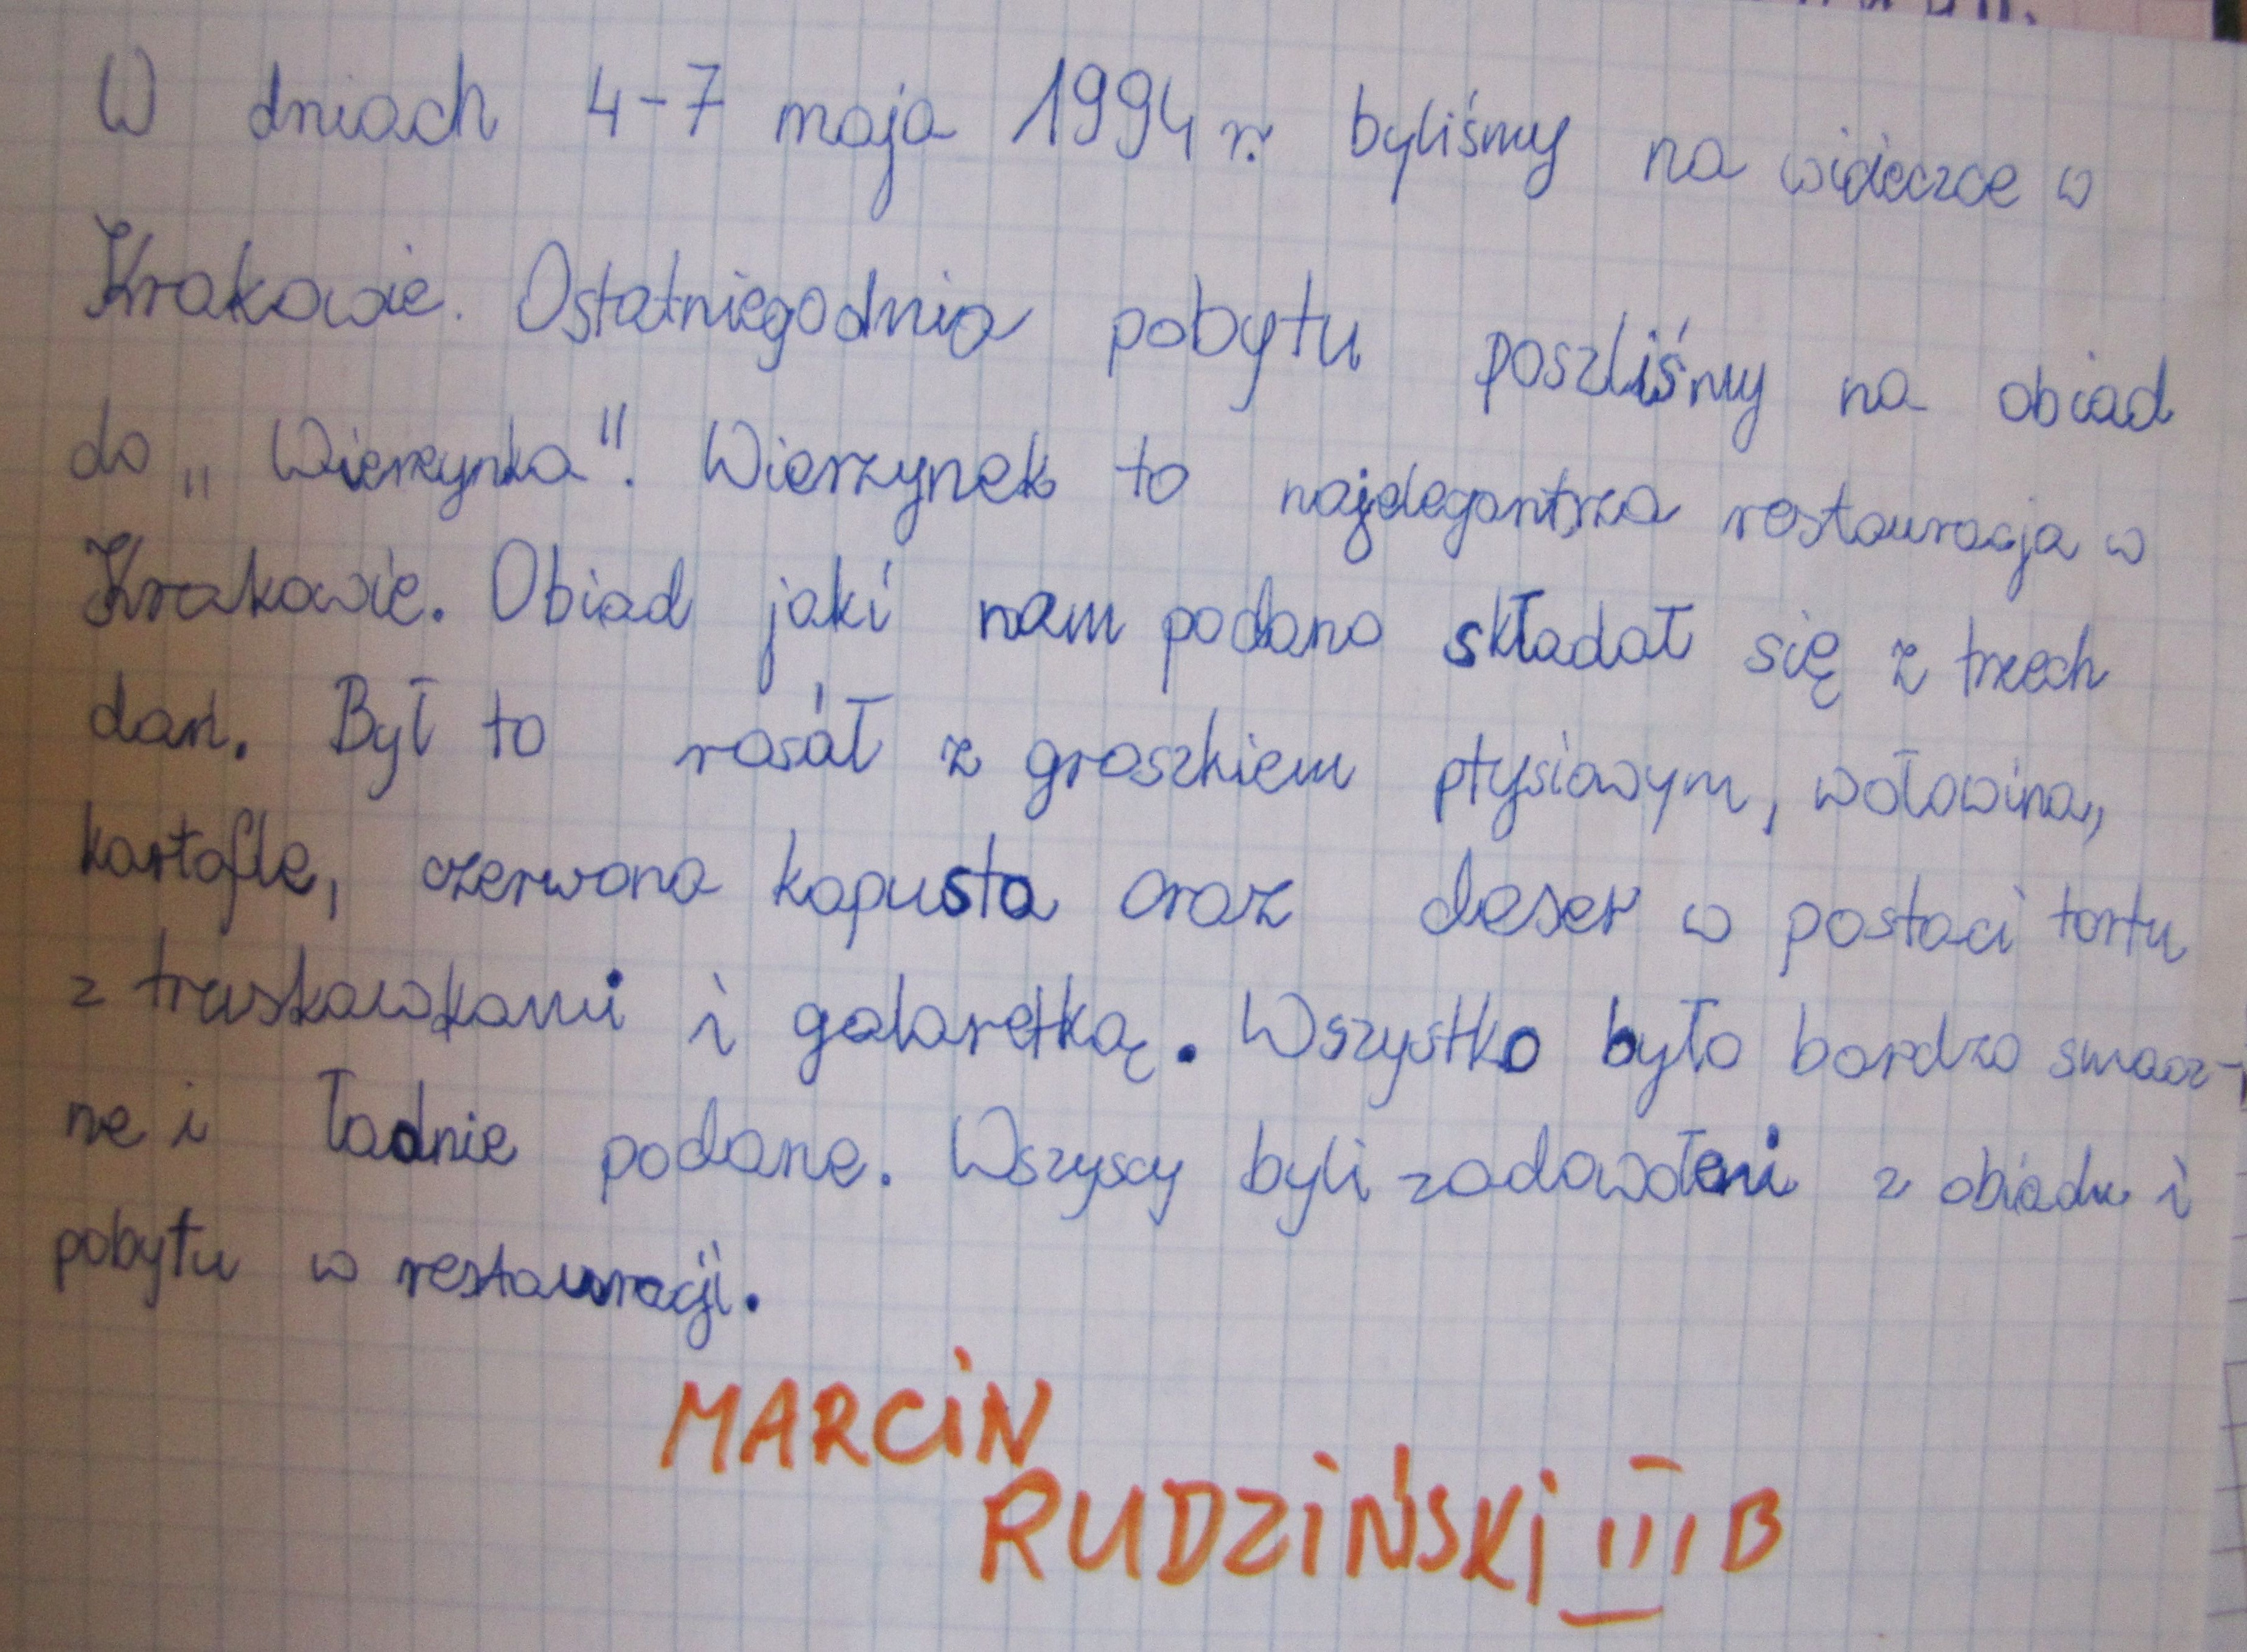 W dniach 4-7 maja 1994 r. byliśmy na wideczce w
Krakowie. Ostatniegodnia pobytu poszliśmy na obiad
do „Wierzynka". Wierzynek to najelegantsza restauracja w
Krakowie. Obiad jaki nam podano składał się z trzech
dań. Był to rosół z groszkiem ptysiowym, wołowina,
kartofle, czerwona kapusta oraz deser w postaci tortu
z truskawkami i galaretką. Wszystko było bardzo smacz-
ne i ładnie podane. Wszyscy byli zadowoleni z obiadu i
pobytu w restauracji.
MARCIN
RUDZIŃSKI III B